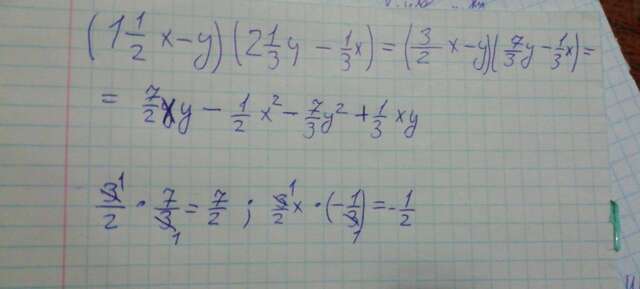 (1 1/2 x - y)(2 1/3 y - 1/3 x) = (3/2 x - y)(7/3 y - 1/3 x) =
= 7/2 xy - 1/2 x² - 7/3 y² + 1/3 xy
3¹/2 · 7/3₁ = 7/2 ; 3¹/2 x · (-1/3₁) = -1/2